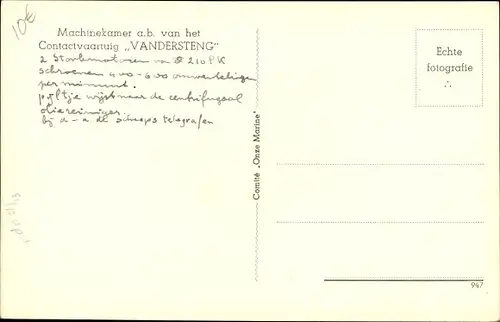 10€
Machinekamer a.b. van het
Contactvaartuig „VANDERSTENG"
2 Stork motoren van 210 PK
schroeven 400-600 omwentelingen
per minuut.
pijltje wijst naar de centrifugaal
oliereiniger.
bij a - a de scheeps telegrafen
Echte
fotografie
Comité „Onze Marine"
947